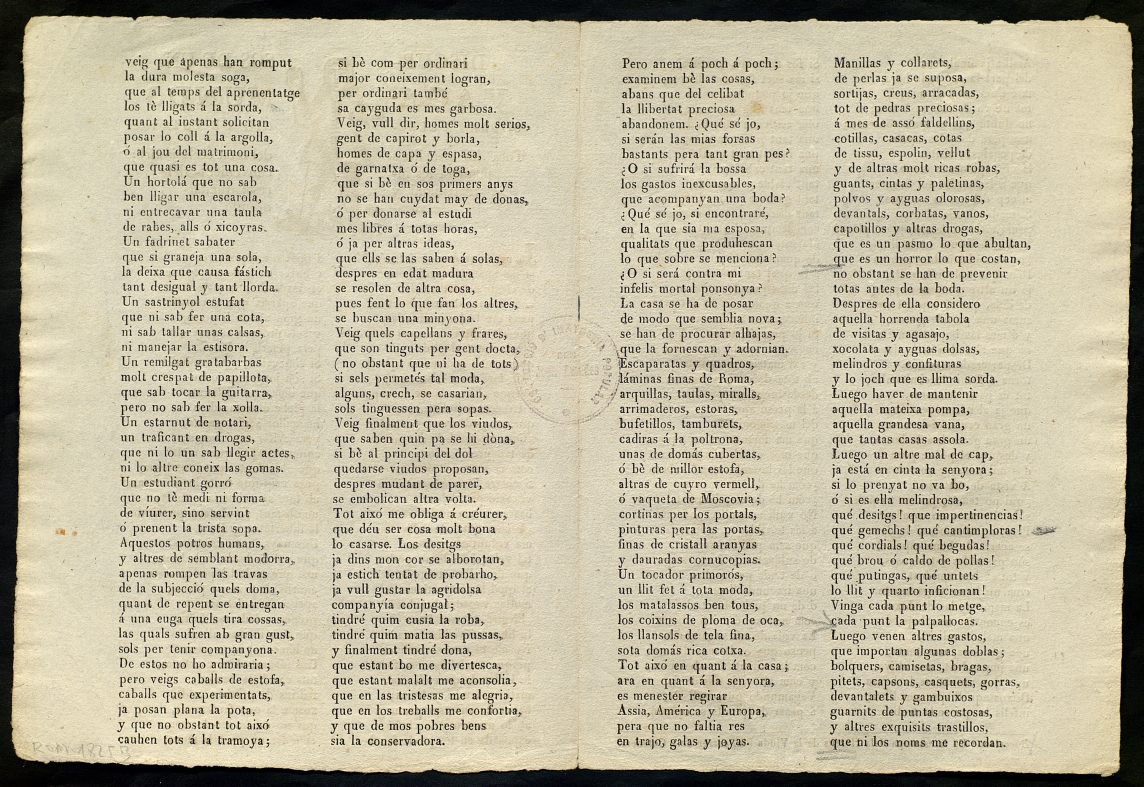 veig que apenas han romput
la dura molesta soga,
que al temps del aprenentatge
los tè lligats á la sorda,
quant al instant solicitan
posar lo coll á la argolla,
ó al jou del matrimoni,
que quasi es tot una cosa.
Un hortolá que no sab
ben lligar una escarola,
ni entrecavar una taula
de rabes, alls ó xicoyras.
Un fadrinet sabater
que si graneja una sola,
la deixa que causa fástich
tant desigual y tant llorda.
Un sastrinyol estufat
que ni sab fer una cota,
ni sab tallar unas calsas,
ni manejar la estisora.
Un remilgat gratabarbas
molt crespat de papillota,
que sab tocar la guitarra,
pero no sab fer la xolla.
Un estarnut de notari,
un traficant en drogas,
que ni lo un sab llegir actes,
ni lo altre coneix las gomas.
Un estudiant gorró
que no tè medi ni forma
de víurer, sino servint
ó prenent la trista sopa.
Aquestos potros humans,
y altres de semblant modorra,
apenas rompen las travas
de la subjecció quels doma,
quant de repent se entregan
á una euga quels tira cossas,
las quals sufren ab gran gust,
sols per tenir companyona.
De estos no ho admiraria;
pero veigs caballs de estofa,
caballs que experimentats,
ja posan plana la pota,
y que no obstant tot aixó
cauhen tots á la tramoya;
si bè com per ordinari
major coneixement logran,
per ordinari també
sa cayguda es mes garbosa.
Veig, vull dir, homes molt serios,
gent de capirot y borla,
homes de capa y espasa,
de garnatxa ó de toga,
que si bè en sos primers anys
no se han cuydat may de donas,
ó per donarse al estudi
mes libres á totas horas,
ó ja per altras ideas,
que ells se las saben á solas,
despres en edat madura
se resolen de altra cosa,
pues fent lo que fan los altres,
se buscan una minyona.
Veig quels capellans y frares,
que son tinguts per gent docta,
(no obstant que ni ha de tots)
si sels permetés tal moda,
alguns, crech, se casarian,
sols tinguessen pera sopas.
Veig finalment que los viudos,
que saben quin pa se hi dòna,
si bè al principi del dol
quedarse viudos proposan,
despres mudant de parer,
se embolican altra volta.
Tot aixó me obliga á créurer,
que déu ser cosa molt bona
lo casarse. Los desitgs
ja dins mon cor se alborotan,
ja estich tentat de probarho,
ja vull gustar la agridolsa
companyía conjugal;
tindré quim cusia la roba,
tindré quim matia las pussas,
y finalment tindré dona,
que estant bo me divertesca,
que estant malalt me aconsolia,
que en las tristesas me alegria,
que en los treballs me confortia,
y que de mos pobres bens
sia la conservadora.
Pero anem á poch á poch;
examinem bè las cosas,
abans que del celibat
la llibertat preciosa
abandonem. ¿Qué sé jo,
si serán las mias forsas
bastants pera tant gran pes?
¿O si sufrirá la bossa
los gastos inexcusables,
que acompanyan una boda?
¿Qué sé jo, si encontraré,
en la que sia ma esposa,
qualitats que produhescan
lo que sobre se menciona?
¿O si será contra mi
infelis mortal ponsonya?
La casa se ha de posar
de modo que semblia nova;
se han de procurar alhajas,
que la fornescan y adornian.
Escaparatas y quadros,
láminas finas de Roma,
arquillas, taulas, miralls,
arrimaderos, estoras,
bufetillos, tamburets,
cadiras á la poltrona,
unas de domás cubertas,
ó bè de millor estofa,
altras de cuyro vermell,
ó vaqueta de Moscovia;
cortinas per los portals,
pinturas pera las portas,
finas de cristall aranyas
y dauradas cornucopias.
Un tocador primorós,
un llit fet á tota moda,
los matalassos ben tous,
los coixins de ploma de oca,
los llansols de tela fina,
sota domás rica cotxa.
Tot aixó en quant á la casa;
ara en quant á la senyora,
es menester regirar
Assia, América y Europa,
pera que no faltia res
en trajo, galas y joyas.
Manillas y collarets,
de perlas ja se suposa,
sortijas, creus, arracadas,
tot de pedras preciosas;
á mes de assó faldellins,
cotillas, casacas, cotas
de tissu, espolin, vellut
y de altras molt ricas robas,
guants, cintas y paletinas,
polvos y ayguas olorosas,
devantals, corbatas, vanos,
capotillos y altras drogas,
que es un pasmo lo que abultan,
que es un horror lo que costan,
no obstant se han de prevenir
totas antes de la boda.
Despres de ella considero
aquella horrenda tabola
de visitas y agasajo,
xocolata y ayguas dolsas,
melindros y confituras
y lo joch que es llima sorda.
Luego haver de mantenir
aquella mateixa pompa,
aquella grandesa vana,
que tantas casas assola.
Luego un altre mal de cap,
ja está en cinta la senyora;
si lo prenyat no va bo,
ó si es ella melindrosa,
qué desitgs! que impertinencias!
qué gemechs! qué cantimploras!
qué cordials! qué begudas!
qué brou ó caldo de pollas!
qué putingas, qué untets
lo llit y quarto inficionan!
Vinga cada punt lo metge,
cada punt la palpallocas.
Luego venen altres gastos,
que importan algunas doblas;
bolquers, camisetas, bragas,
pitets, capsons, casquets, gorras,
devantalets y gambuixos
guarnits de puntas costosas,
y altres exquisits trastillos,
que ni los noms me recordan.